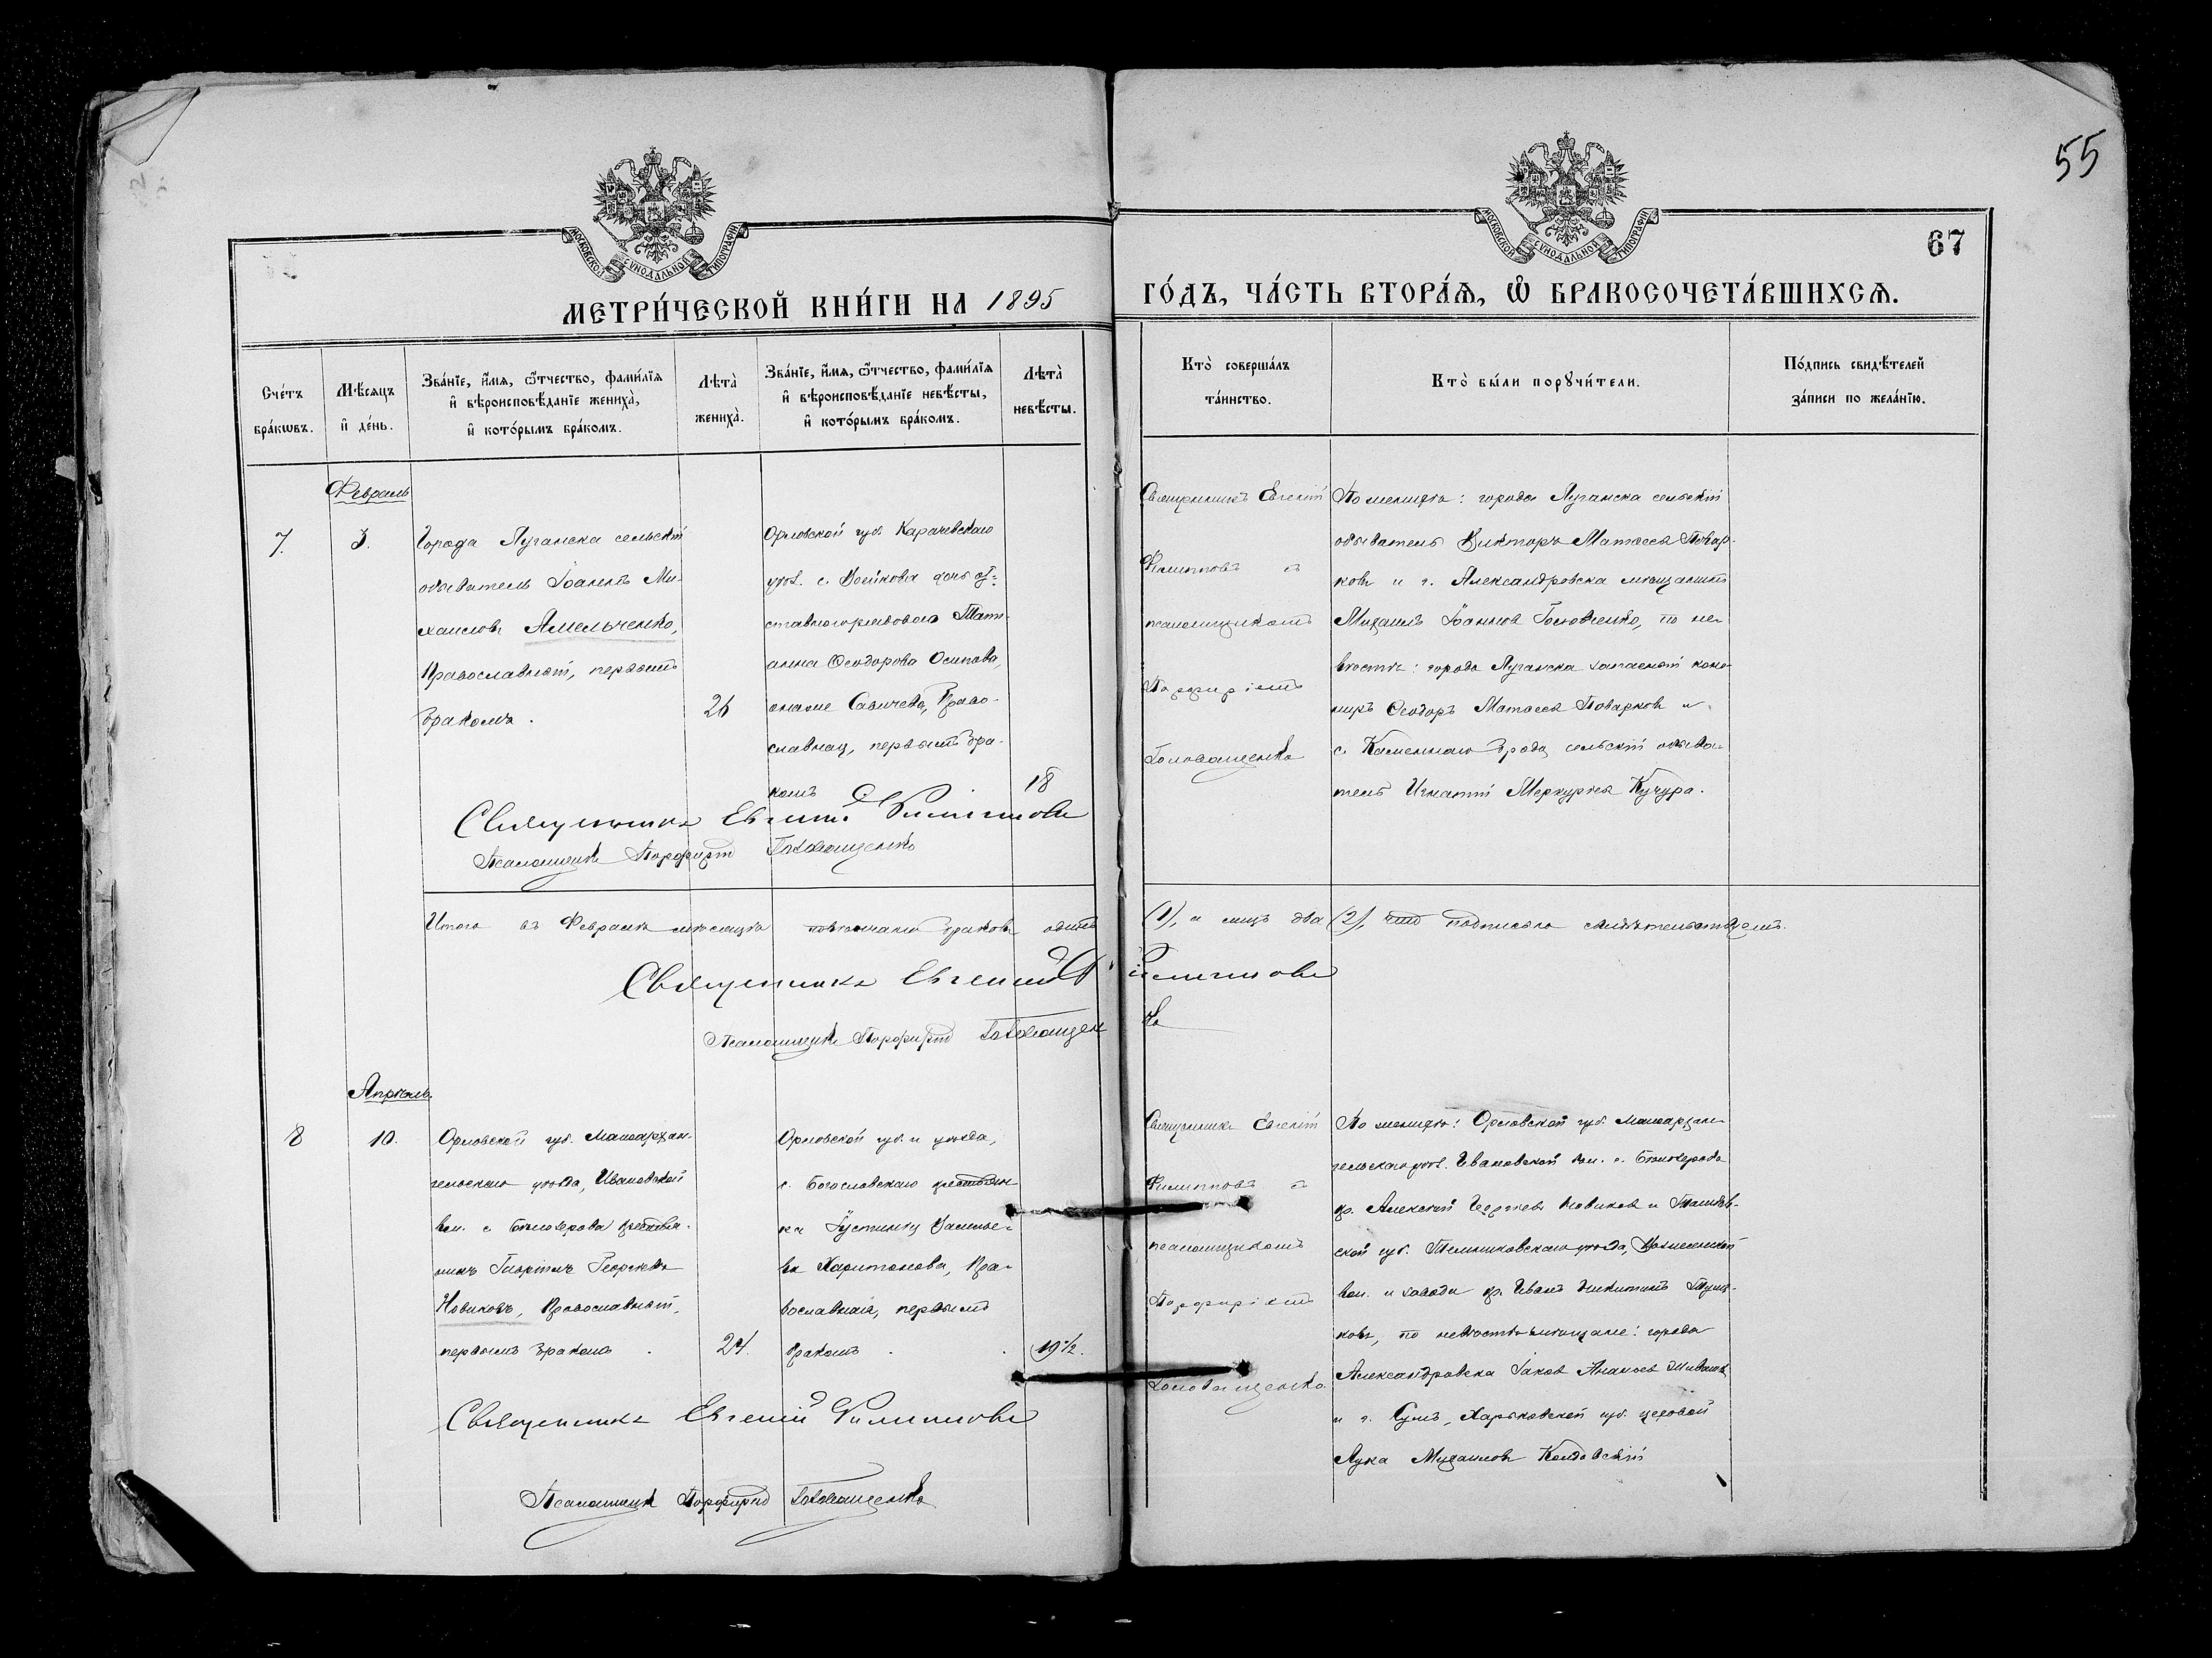 55
67
МОСКОВСКОЙ СѴНОДАЛЬНОЙ ТИПОГРАФІИ
МОСКОВСКОЙ СѴНОДАЛЬНОЙ ТИПОГРАФІИ
МЕТРИ́ЧЕСКОЙ КНИ́ГИ НА 1895 ГО́ДЪ, ЧА́СТЬ ВТОРА́Ѧ, Ѽ БРАКОСОЧЕТА́ВШИХСѦ.
Сче́тъ бра́кѡвъ.
Мѣ́сѧцъ и҆ де́нь.
Зва́нїе, и҆́мѧ, ѻ҆́тчество, фами́лїѧ
и҆ вѣроисповѣ́данїе жениха̀,
и҆ кото́рымъ бра́комъ.
Лѣта̀ жениха̀.
Зва́нїе, и҆́мѧ, ѻ҆́тчество, фами́лїѧ
и҆ вѣроисповѣ́данїе невѣ́сты,
и҆ кото́рымъ бра́комъ.
Лѣта̀ невѣ́сты.
Кто̀ соверша́лъ
та́инство.
Кто̀ бы́ли порꙋчи́тели.
По́дпись свидѣ́телей
за́писи по жела́нїю.
Февраль
7.
3.
Города Луганска сельскій
обыватель Іоаннъ Ми-
хаиловъ Амельченко,
Православный, первымъ
бракомъ.
26
Орловской губ. Карачевскаго
уѣз. с. дочь от-
ставного рядового Тать-
анна Ѳеодорова Осипова,
онаже Савичева, Право-
славная, первымъ бра-
комъ
18
Священникъ Евгеній
Филипповъ съ
псаломщикомъ
Порфиріемъ
Головащенко
По женихѣ: города Луганска сельскій
обыватель Викторъ Матѳеевъ Повар-
ковъ и г. Александровска мѣщанинъ
Михаилъ Іоанновъ Головченко, по не-
вѣстѣ: города Луганска запасной кано-
ниръ Ѳеодоръ Матѳеевъ Поварков и
с. Каменнаго Брода сельскій обыва-
тель Игнатій Меркурьевъ Кучура.
Священникъ Евгеній Филипповъ
Псаломщикъ Порфирій Головащенко
Итого въ Февралѣ мѣсяцѣ повѣнчано браковъ одинъ (1), а лицъ два (2), что подписомъ свидѣтельствуемъ.
Священникъ Евгеній Филипповъ
Псаломщикъ Порфирій Головащенко
Апрѣль.
8
10.
Орловской губ. Малоархан-
гельскаго уѣзда, Ивановской
вол. с. крестья-
нинъ Георгіевъ
Новиковъ, Православный,
первымъ бракомъ.
24.
Орловской губ. и уѣзда,
с. Богословскаго крестьян-
ка Іустинія Василье-
ва Харитонова, Пра-
вославная, первымъ
бракомъ.
19½.
Священникъ Евгеній
Филипповъ съ
псаломщикомъ
Порфиріемъ
Головащенко
По женихѣ: Орловской губ. Малоархан-
гельскаго уѣз. Ивановской вол. с.
кр. Алексѣй Новиковъ и Тамбов-
ской губ. Темниковскаго уѣзда, Вознесенской
вол. и завода кр. Иванъ Никитинъ
ковъ, по невѣстѣ мѣщане: города
Александровска Іаков Ананьев
и г. Сумъ, Харьковской губ. цеховой
Лука Михаиловъ
Священникъ Евгеній Филипповъ
Псаломщикъ Порфирій Головащенко